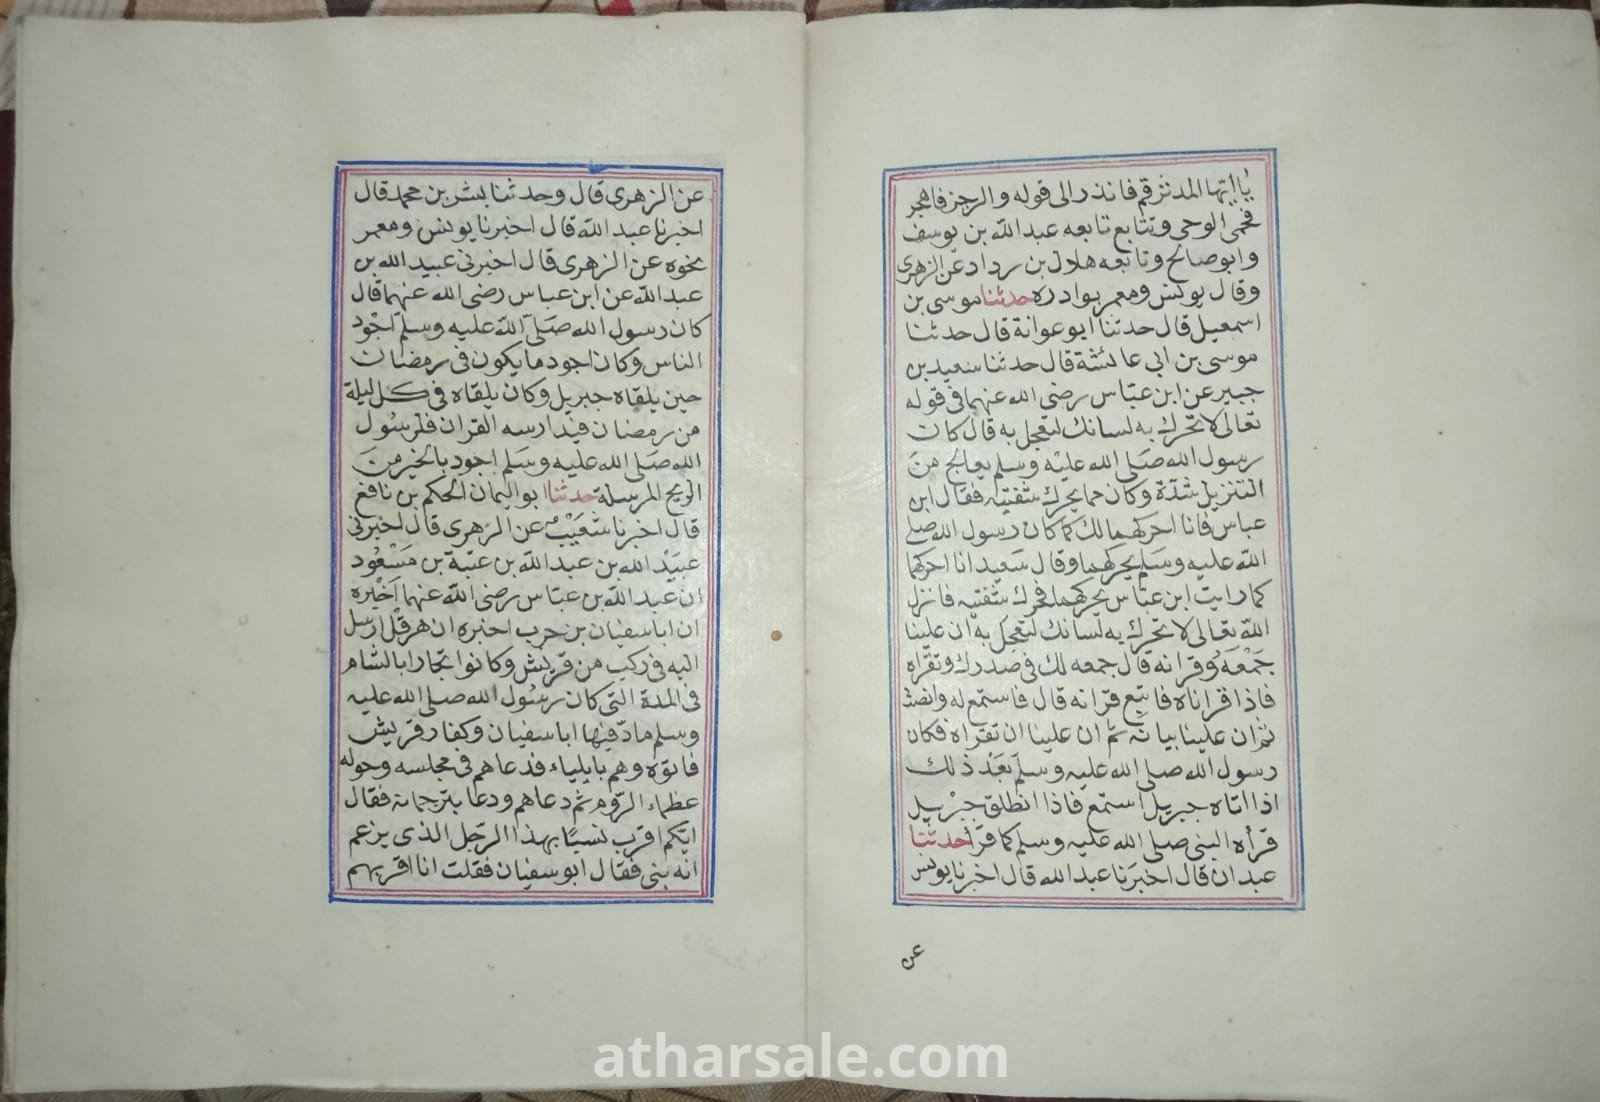 يا ايها المدثر قم فانذر الى قوله والرجز فاهجر
فحمى الوحى وتتابع تابعه عبد الله بن يوسف
وابو صالح وتابعه هلال بن رداد عن الزهرى
وقال يونس ومعمر بوادره حدثنا موسى بن
اسمعيل قال حدثنا ابو عوانة قال حدثنا
موسى بن ابي عائشة قال حدثنا سعيد بن
جبير عن ابن عبّاس رضى الله عنهما فى قوله
تعالى لا تحرك به لسانك لتعجل به قال كان
رسول الله صلى الله عليه وسلم يعالج من
التنزيل شدّة وكان مما يحرك شفتيه فقال ابن
عباس فانا احركهما لك كما كان رسول الله صلى
الله عليه وسلم يحركهما وقال سعيد انا احركهما
كما رايت ابن عبّاس يحركهما فحرك شفتيه فانزل
الله تعالى لا تحرك به لسانك لتعجل به ان علينا
جمعَهُ وقرانه قال جمعه لك فى صدرك وتقراه
فاذا قراناه فاتبع قرانه قال فاستمع له وانصت
ثم ان علينا بيانه ثم ان علينا ان تقراه فكان
رسول الله صلى الله عليه وسلم بعد ذلك
اذا اتاه جبريل استمع فاذا انطلق جبريل
قرأه النبى صلى الله عليه وسلم كما قرأ حدثنا
عبدان قال اخبرنا عبد الله قال اخبرنا يونس
عن
عن الزهرى قال وحدثنا بشر بن محمد قال
اخبرنا عبد الله قال اخبرنا يونس ومعمر
نحوه عن الزهرى قال اخبرنى عبيد الله بن
عبد الله عن ابن عباس رضى الله عنهما قال
كان رسول الله صلى الله عليه وسلم اجود
الناس وكان اجود ما يكون فى رمضان
حين يلقاه جبريل وكان يلقاه فى كل ليلة
من رمضان فيدارسه القران فلرسول
الله صلى الله عليه وسلم اجود بالخير من
الريح المرسلة حدثنا ابو اليمان الحكم بن نافع
قال اخبرنا شعَيْبٌ عن الزهرى قال اخبرنى
عبيد الله بن عبد الله بن عتبة بن مسعود
ان عبد الله بن عبّاس رضى الله عنهما اخبره
ان ابا سفيان بن حرب اخبره ان هرقل ارسل
اليه فى ركب من قريش وكانوا تجارا بالشام
فى المدة التى كان رسول الله صلى الله عليه
وسلم مادّ فيها ابا سفيان وكفار قريش
فاتوه وهم بايلياء فدعاهم فى مجلسه وحوله
عظماء الرّوم ثم دعاهم ودعا بترجمانه فقال
ايّكم اقرب نسبًا بهذا الرجل الذى يزعم
انه نبى فقال ابو سفيان فقلت انا اقربهم
atharsale.com